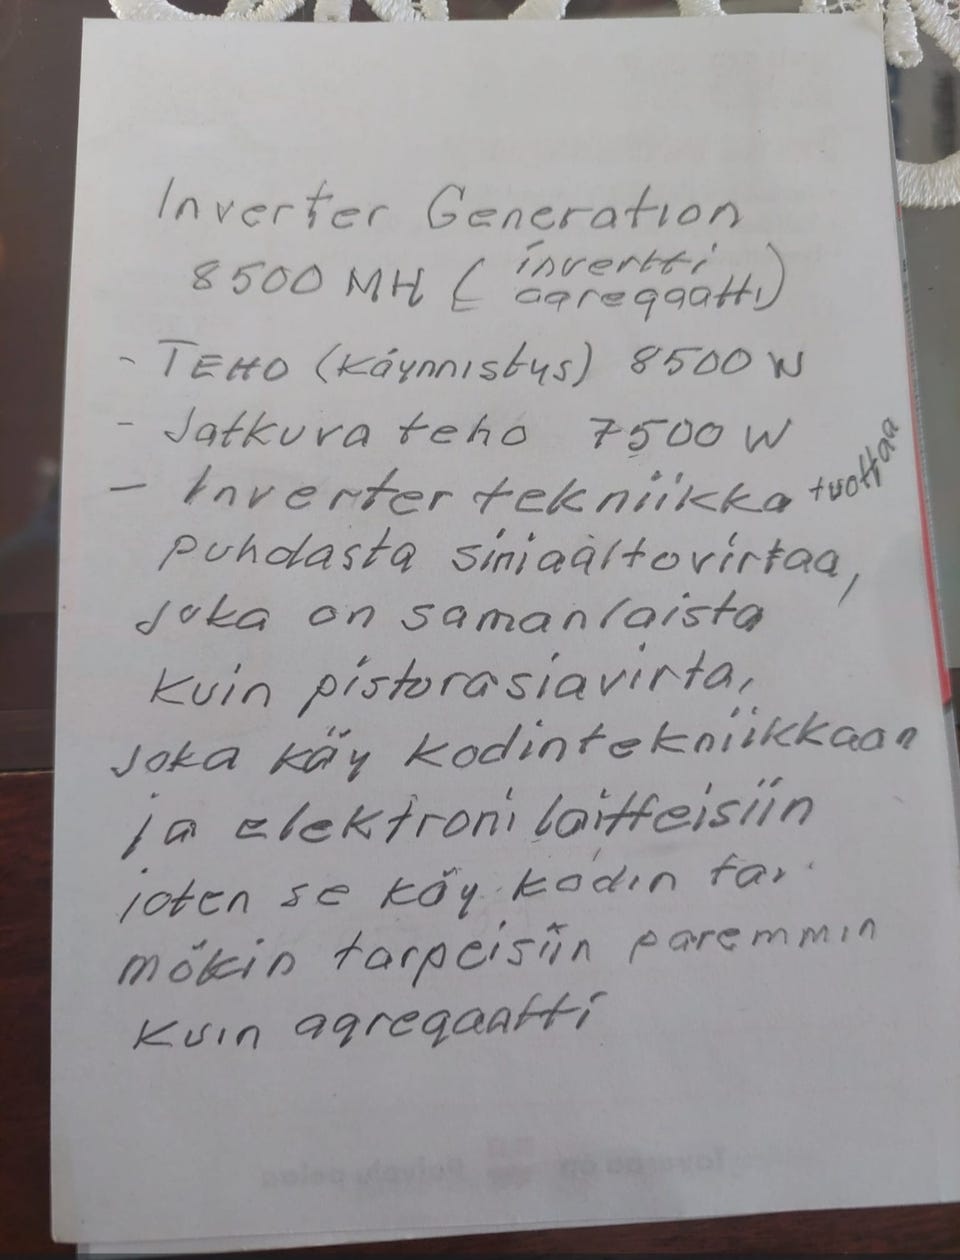 Inverter Generation
8500 MH (invertti
aqreqaatti)
- TEHO (käynnistys) 8500 W
- Jatkuva teho 7500 W
- Inverter tekniikka tuottaa
puhdasta siniaaltovirtaa,
joka on samanlaista
kuin pistorasiavirta,
joka käy kodintekniikkaan
ja elektroni laitteisiin
joten se käy kodin tai
mökin tarpeisiin paremmin
kuin aqreqaatti